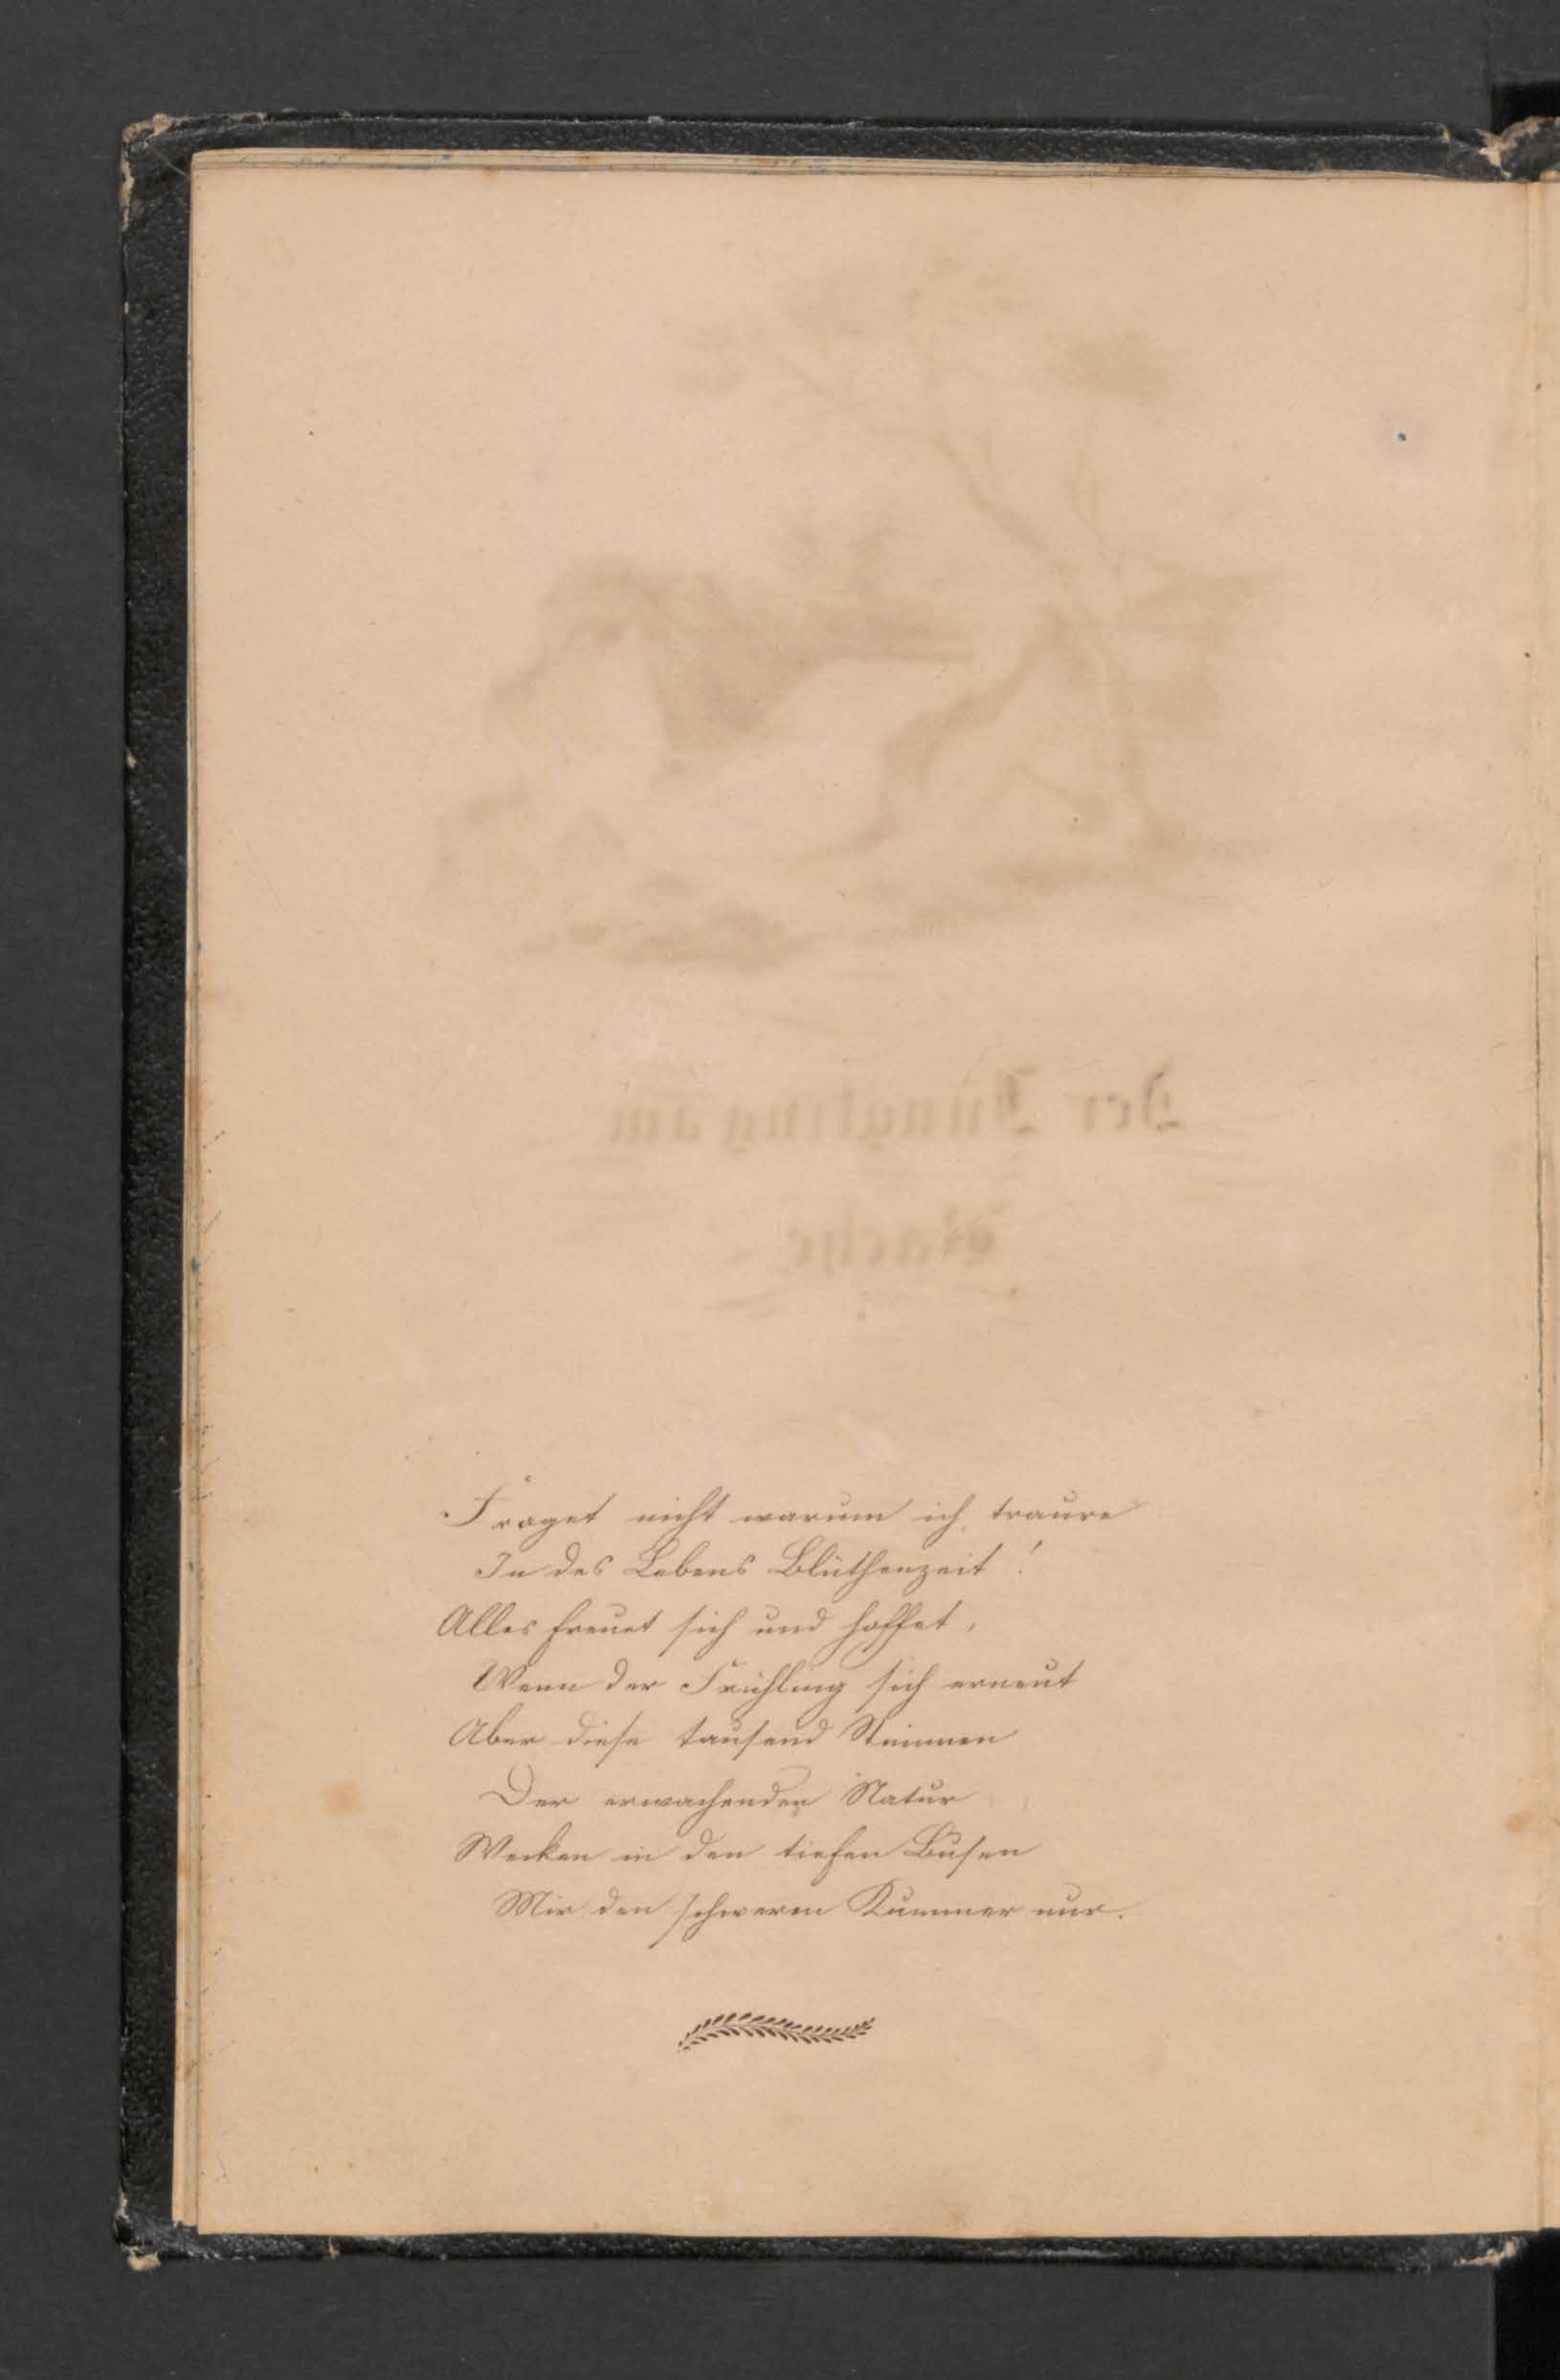 Fraget nicht warum ich traure
In des Lebens Blüthenzeit!
Alles freuet sich und hoffet,
Wenn der Frühling sich erneut
Aber diese tausend Stimmen
Der erwachenden Natur
Wecken in den tiefen Busen
Mir den schweren Kummer nur.